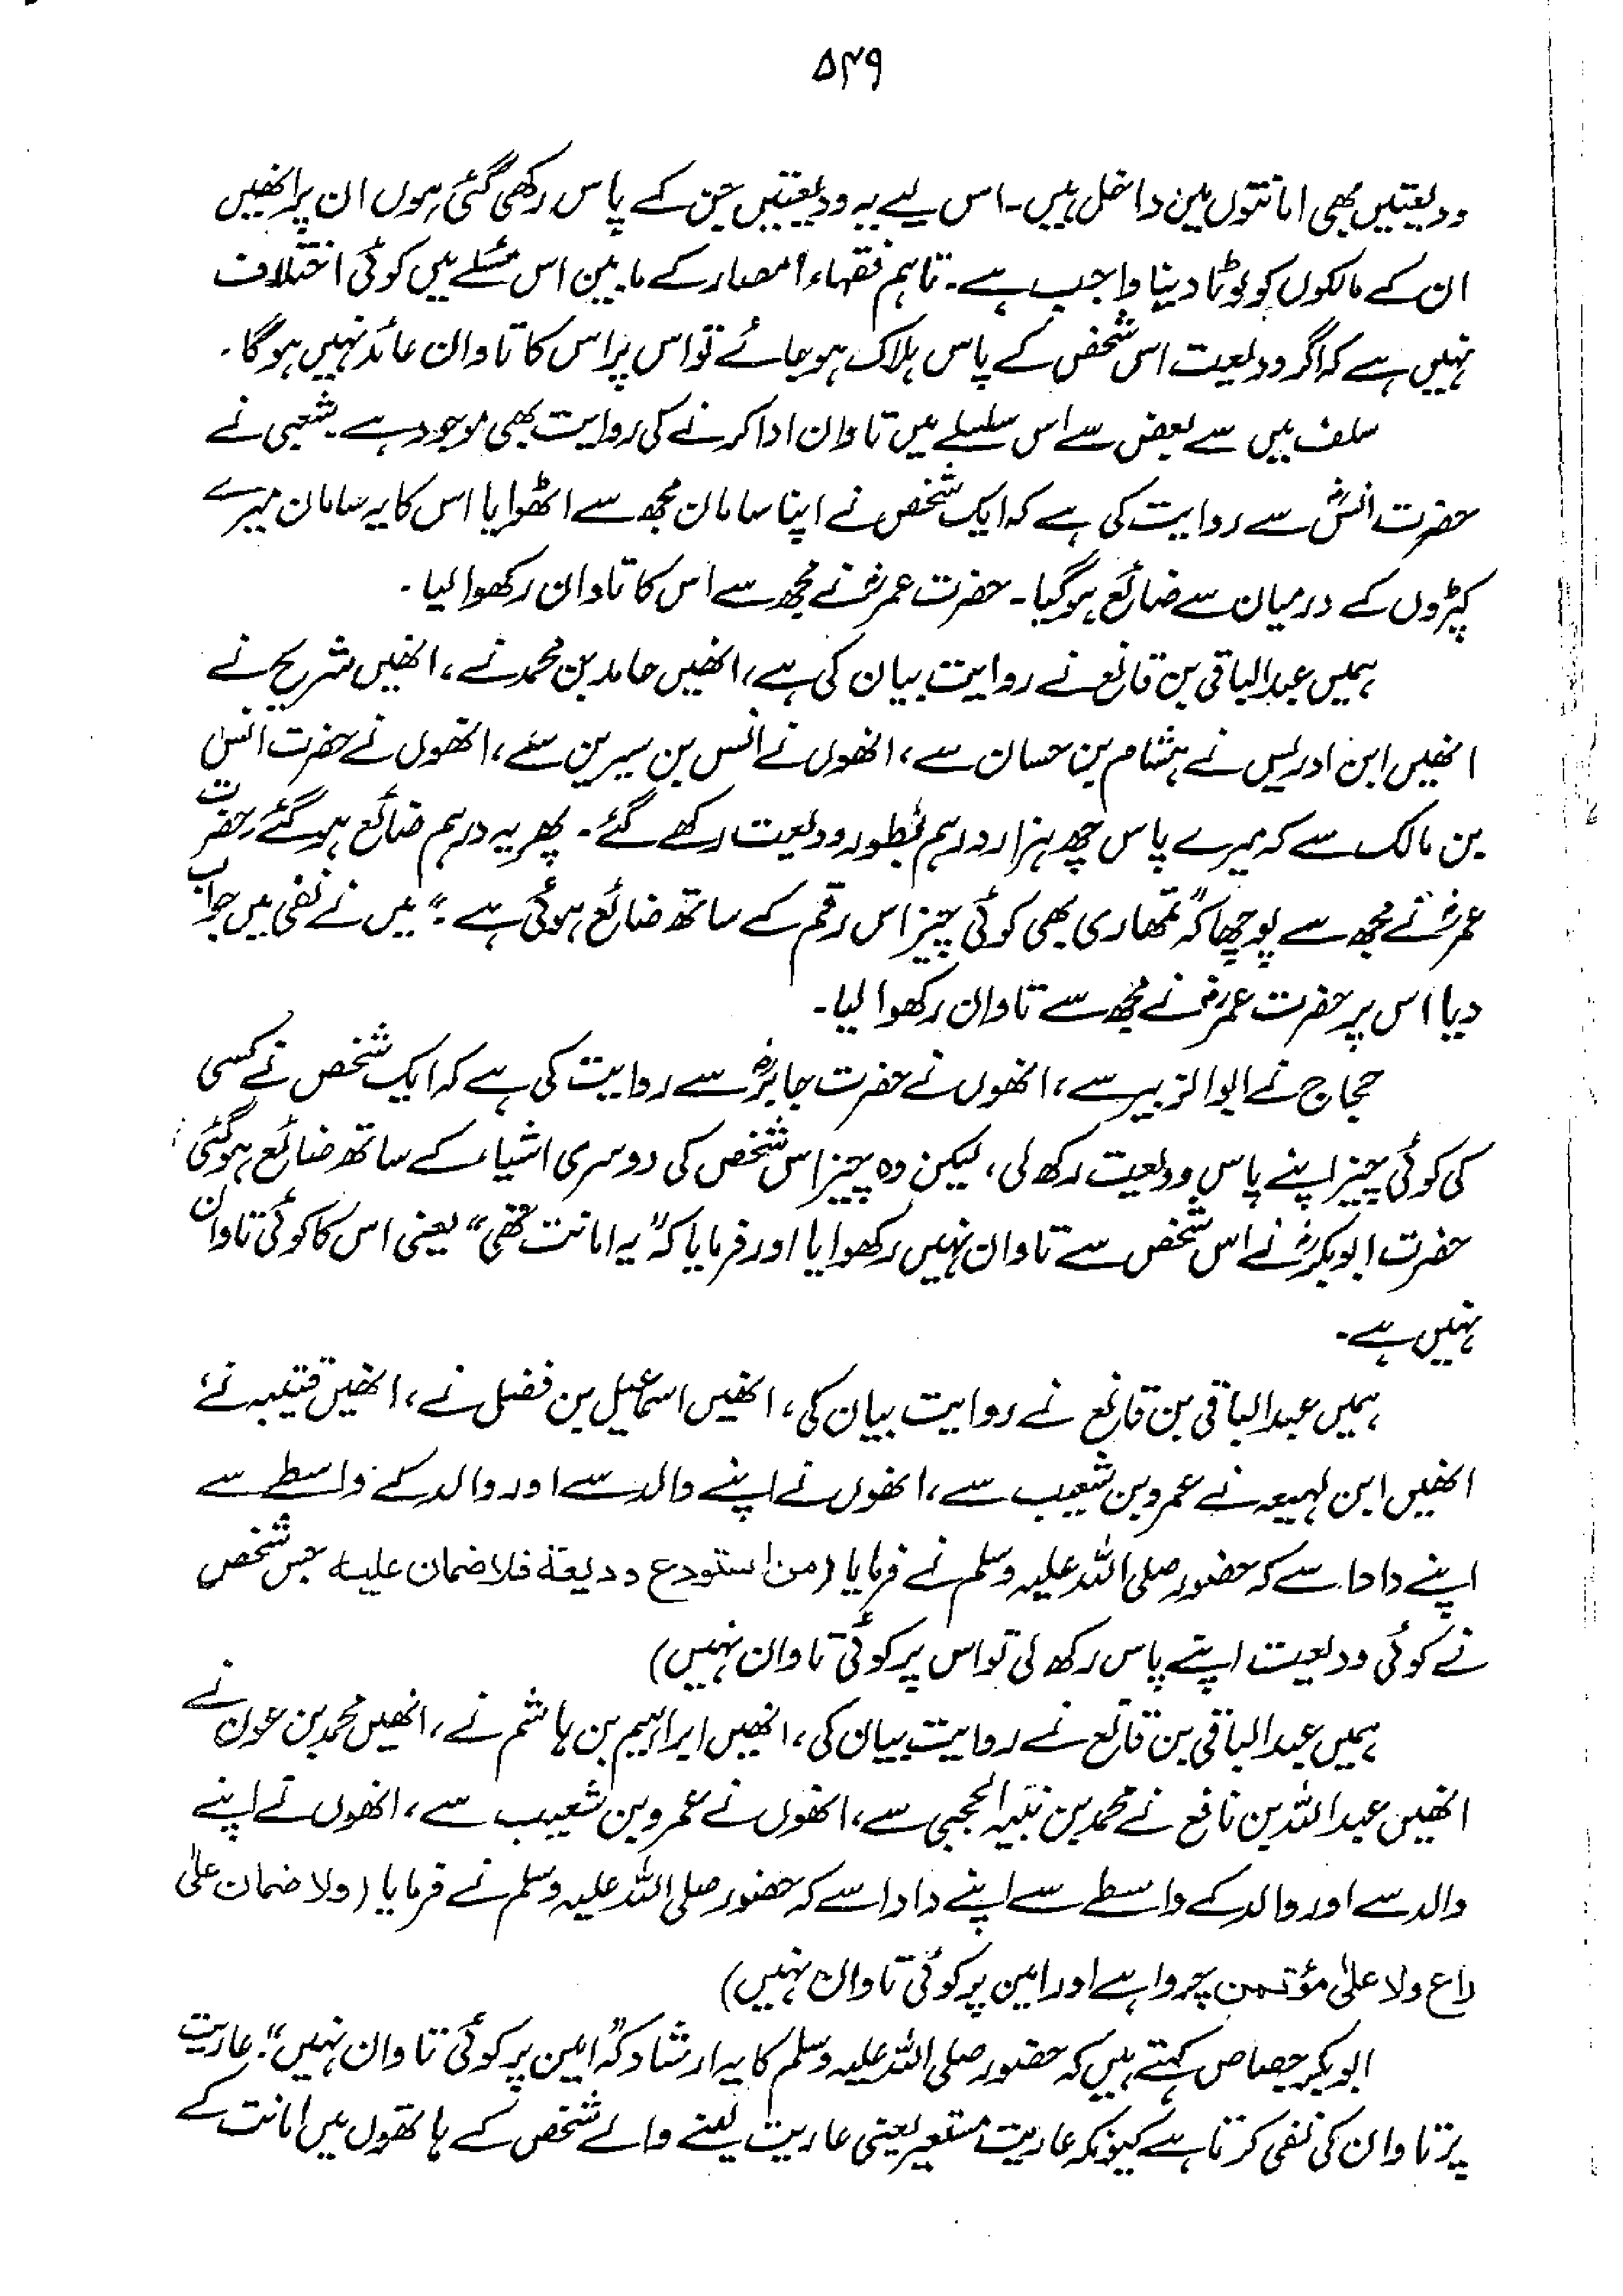 ۵۴۹
ودیعتیں بھی امانتوں میں داخل ہیں۔ اس لیے یہ ودیعتیں جن کے پاس رکھی گئی ہوں ان پر انھیں
ان کے مالکوں کو لوٹا دینا واجب ہے۔ تاہم فقہاء امصار کے مابین اس مسئلے میں کوئی اختلاف
نہیں ہے کہ اگر ودیعت اس شخص کے پاس ہلاک ہو جائے تو اس پر اس کا تاوان عائد نہیں ہوگا۔
سلف میں سے بعض سے اس سلسلے میں تاوان ادا کرنے کی روایت بھی موجود ہے۔ شعبی نے
حضرت انسؓ سے روایت کی ہے کہ ایک شخص نے اپنا سامان مجھ سے اٹھوایا اس کا یہ سامان میرے
کپڑوں کے درمیان سے ضائع ہوگیا۔ حضرت عمرؓ نے مجھ سے اس کا تاوان رکھوا لیا۔
ہمیں عبدالباقی بن قانع نے روایت بیان کی ہے، انھیں حامد بن محمد نے، انھیں شریح نے
انھیں ابن ادریس نے ہشام بن حسان سے، انھوں نے انس بن سیرین سے، انھوں نے حضرت انسؓ
بن مالک سے کہ میرے پاس چھ ہزار درہم بطور ودیعت رکھے گئے۔ پھر یہ درہم ضائع ہو گئے حضرت
عمرؓ نے مجھ سے پوچھا کہ "تمھاری بھی کوئی چیز اس رقم کے ساتھ ضائع ہوئی ہے؟" میں نے نفی میں جواب
دیا اس پر حضرت عمرؓ نے مجھ سے تاوان رکھوا لیا۔
حجاج نے ابوالزبیر سے، انھوں نے حضرت جابرؓ سے روایت کی ہے کہ ایک شخص نے کسی
کی کوئی چیز اپنے پاس ودیعت رکھ لی، لیکن وہ چیز اس شخص کی دوسری اشیاء کے ساتھ ضائع ہوگئی
حضرت ابوبکرؓ نے اس شخص سے تاوان نہیں رکھوایا اور فرمایا کہ "یہ امانت تھی" یعنی اس کا کوئی تاوان
نہیں ہے۔
ہمیں عبدالباقی بن قانع نے روایت بیان کی، انھیں اسماعیل بن فضل نے، انھیں قتیبہ نے،
انھیں ابن لہیعہ نے عمرو بن شعیب سے، انھوں نے اپنے والد سے اور والد کے واسطے سے
اپنے دادا سے کہ حضور صلی اللہ علیہ وسلم نے فرمایا (من استودع ودیعة فلا ضمان علیه جس شخص
نے کوئی ودیعت اپنے پاس رکھ لی تو اس پر کوئی تاوان نہیں)
ہمیں عبدالباقی بن قانع نے روایت بیان کی، انھیں ابراہیم بن ہاشم نے، انھیں محمد بن عون نے
انھیں عبداللہ بن نافع نے محمد بن نبیہ الحجبی سے، انھوں نے عمرو بن شعیب سے، انھوں نے اپنے
والد سے اور والد کے واسطے سے اپنے دادا سے کہ حضور صلی اللہ علیہ وسلم نے فرمایا (ولا ضمان علیٰ
راع ولا علیٰ مؤتمن چرواہے اور امین پر کوئی تاوان نہیں)
ابوبکر جصاص کہتے ہیں کہ حضور صلی اللہ علیہ وسلم کا یہ ارشاد کہ "امین پر کوئی تاوان نہیں"۔ عاریت
پر تاوان کی نفی کرتا ہے کیونکہ عاریت مستعیر یعنی عاریت لینے والے شخص کے ہاتھوں میں امانت کے